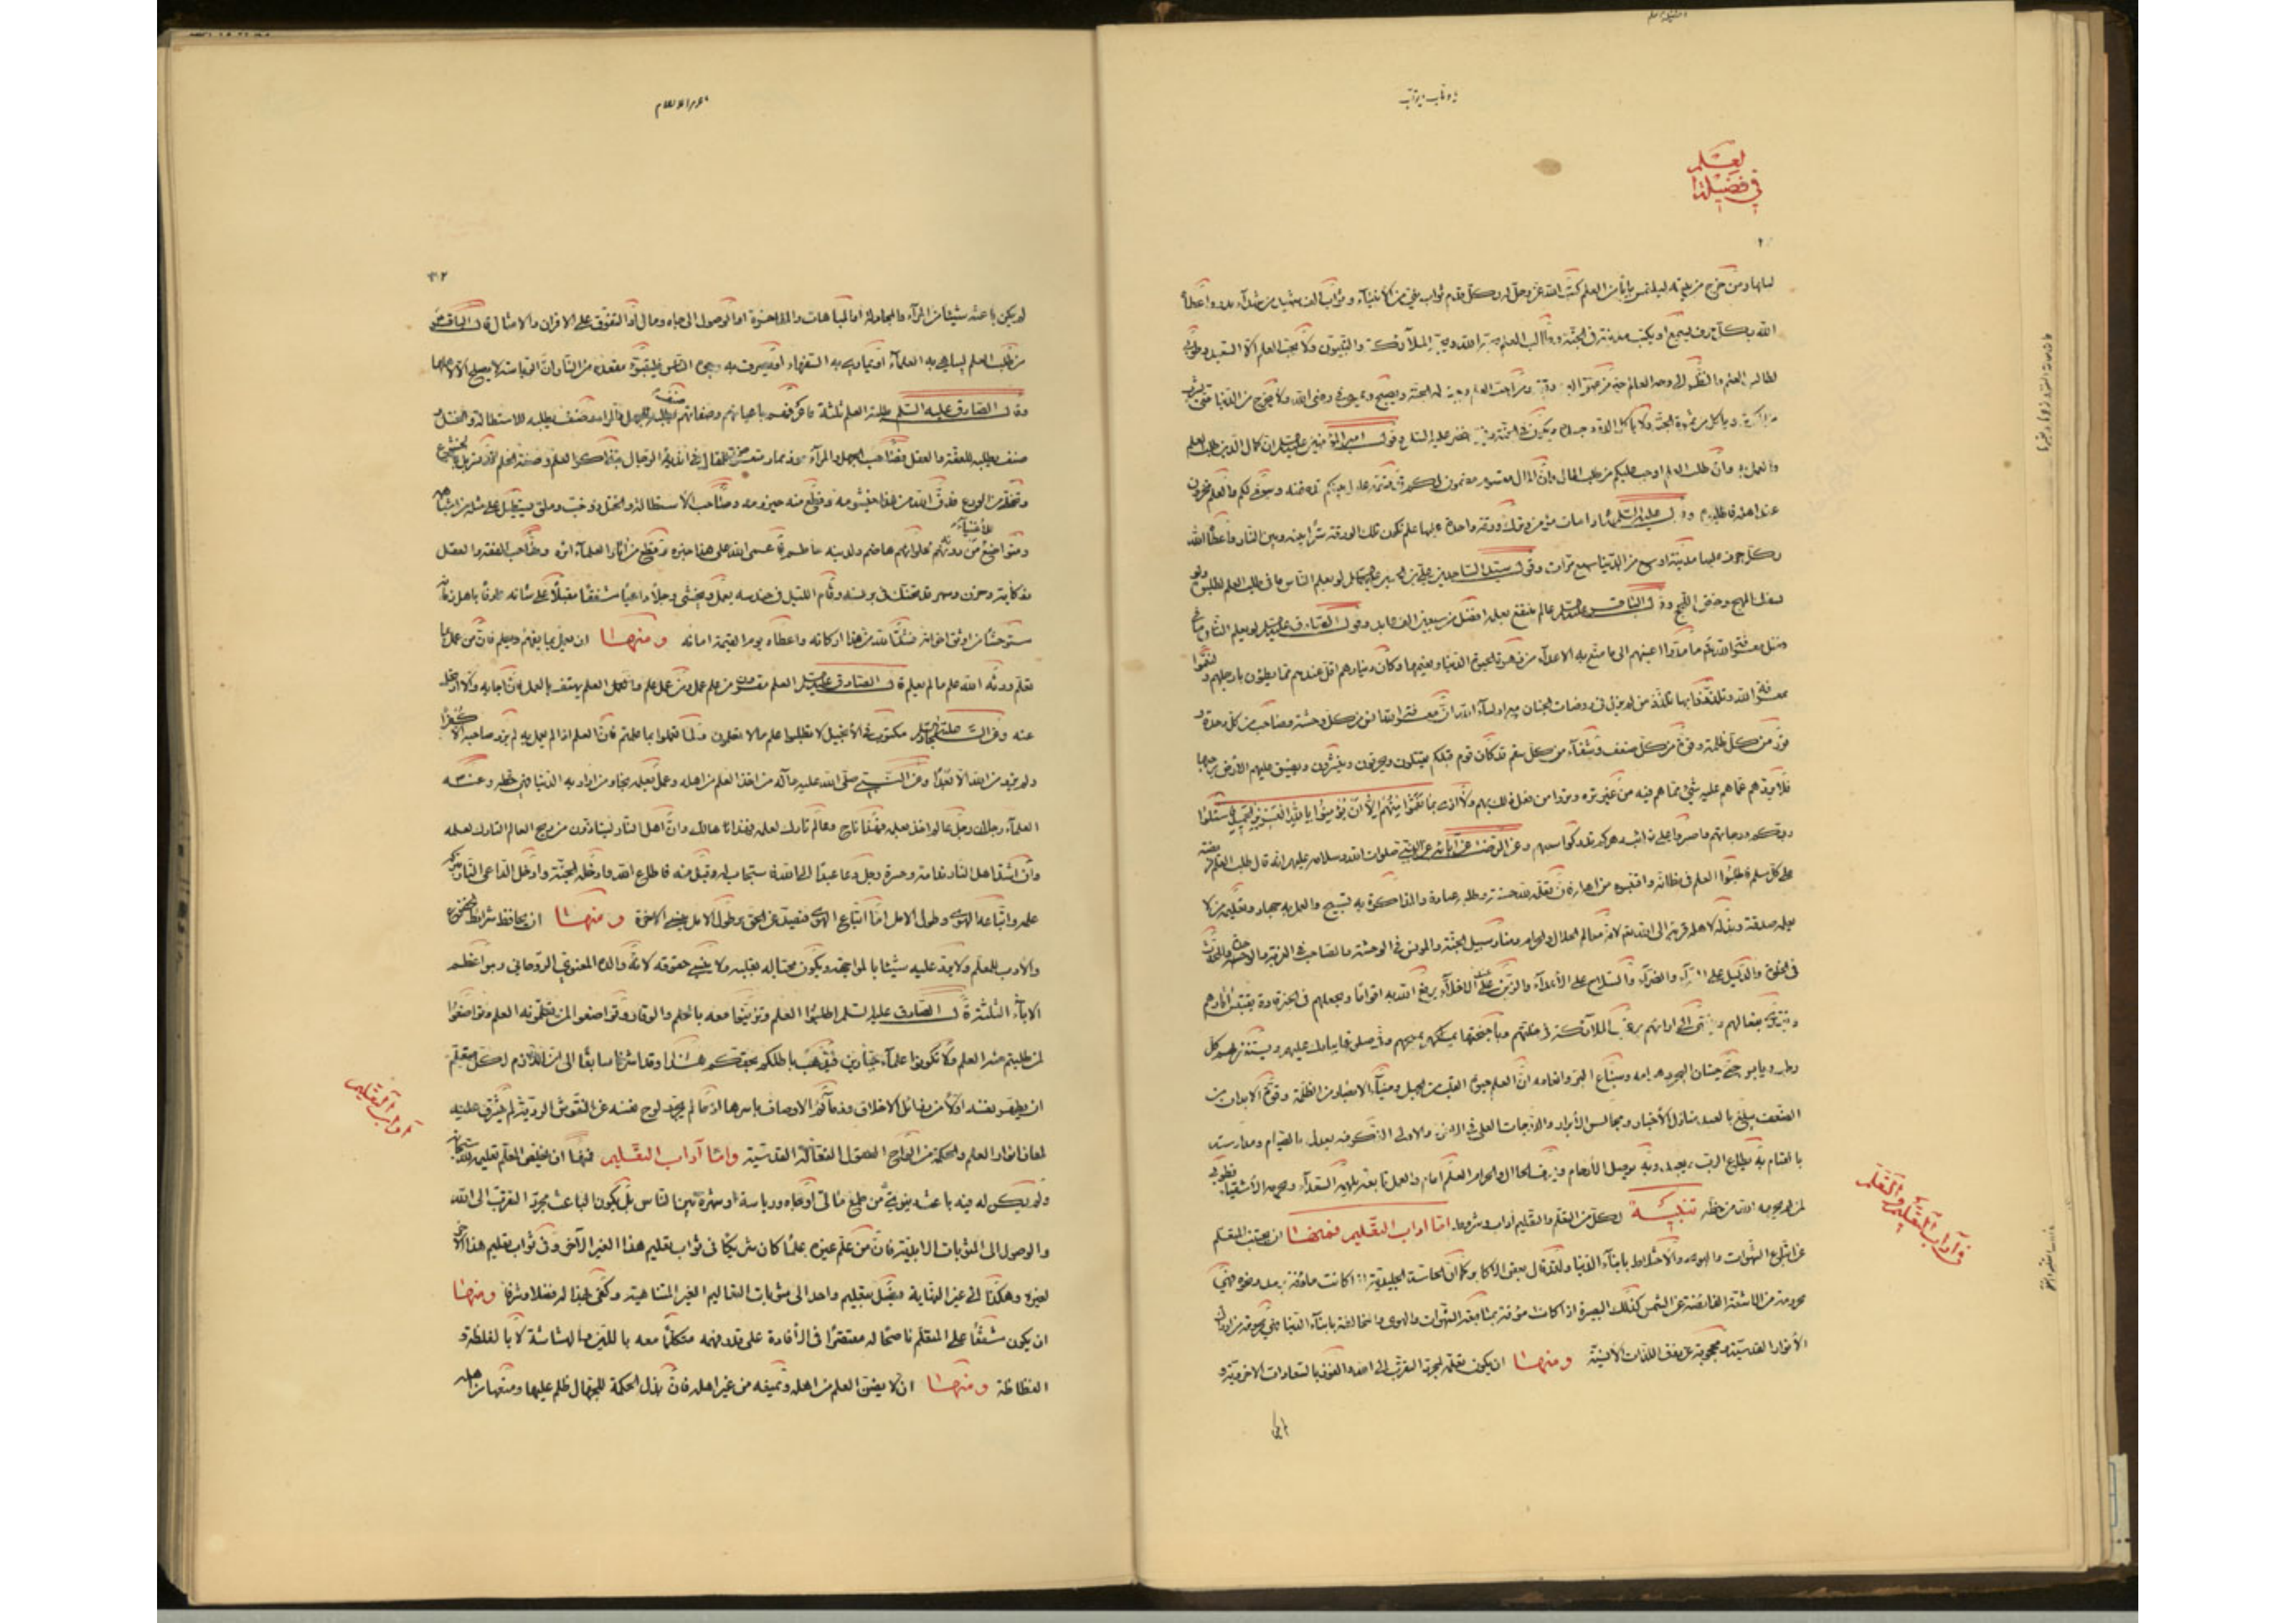 في فضيلة
لعلم
لبابها ومن خرج من بيته ليلتمس بابا من العلم كتب الله عز وجل له بكل قدم ثواب نبي من الأنبياء وثواب الف شهيد من شهداء بدر واعطاه
الله بكل حرف يسمع او يكتب مدينة في الجنة وطالب العلم حبه الله وحبه الملائكة والنبيون ولا يحب العلم الا السعيد وطوبى
لطالب العلم والنظر الى وجه العالم خير من عتق الف رقبة ومن احب العلم وجبت له الجنة ويصبح ويمسي في رضى الله ولا يخرج من الدنيا حتى يشرب
من الكوثر وياكل من ثمرة الجنة ولا ياكل الدود جسده ويكون في الجنة رفيق خضر عليه السلام وقول امير المؤمنين ان كمال الدين طلب العلم
والعمل به وان طلب العلم اوجب عليكم من طلب المال وان المال مقسوم مضمون لكم قد قسمه عادل بينكم قد ضمنه وسيفي لكم والعلم مخزون
عند اهله فاطلبوه عليه السلم اذا مات مؤمن وترك ورقة واحدة عليها علم تكون تلك الورقة سترا بينه وبين النار واعطاه الله
بكل حرف عليها مدينة اوسع من الدنيا سبع مرات وقول سيد الساجدين علي بن الحسين لو يعلم الناس ما في طلب العلم لطلبوه ولو
بسفك المهج وخوض اللجج وقول الباقر عالم ينتفع بعلمه افضل من سبعين الف عابد وقول الصادق لو يعلم الناس ما في
فضل معرفة الله تع ما مدوا اعينهم الى ما متع به الاعداء من زهرة الحيوة الدنيا ونعيمها وكانت دنياهم اقل عندهم مما يطؤن بارجلهم ولنعموا
بمعرفة الله وتلذذوا بها تلذذ من لم يزل في روضات الجنان مع اولياء الله ان معرفة الله انس من كل وحشة وصاحب من كل وحدة و
نور من كل ظلمة وقوة من كل ضعف وشفاء من كل سقم قد كان قوم قبلكم يقتلون ويحرقون وينشرون وتضيق عليهم الارض برحبها
فلا يردهم عما هم عليه شيء مما هم فيه من غير ترة وتروا من فعل ذلك بهم ولا اذى بما نقموا منهم الا ان يؤمنوا بالله العزيز الحميد فسئلوا
ربكم درجاتهم واصبروا على نوائب دهركم تدركوا سعيهم وعن الرضا عن ابائه عن النبي صلوات الله وسلامه عليهم انه قال طلب العلم فريضة
على كل مسلم فاطلبوا العلم في مظانه واقتبسوه من اهله فان تعلمه لله حسنة وطلبه عبادة والمذاكرة به تسبيح والعمل به جهاد وتعليمه من لا
يعلمه صدقة وبذله لاهله قربة الى الله تع لانه معالم الحلال والحرام ومنار سبيل الجنة والمونس في الوحشة والصاحب في الغربة والوحدة والمحدث
في الخلوة والدليل على السراء والضراء والسلاح على الأعداء والزين عند الاخلاء يرفع الله به اقواما ويجعلهم في الخير قادة يقتبس اثارهم
ويهتدى بفعالهم وينتهى الى ارائهم ترغب الملائكة في خلتهم وباجنحتها تمسحهم وفي صلوتها تبارك عليهم ويستغفر لهم كل
رطب ويابس حتى حيتان البحر وهوامه وسباع البر وانعامه ان العلم حيوة القلب من الجهل وضياء الابصار من الظلمة وقوة الابدان من
الضعف يبلغ بالعبد منازل الأخيار ومجالس الأبرار والدرجات العلى في الدنيا والاخرة الذكر فيه يعدل بالصيام ومدارسته
بالقيام به يطاع الرب ويعبد وبه توصل الأرحام ويعرف الحلال والحرام العلم امام والعمل تابعه يلهمه السعداء ويحرمه الأشقياء فطوبى
لمن لم يحرمه الله من حظه تنبيه لكل من التعلم والتعليم آداب وشروط اما اداب التعلم فمنها ان يجتنب المتعلم
عن اتباع الشهوات والهوى والاختلاط بابناء الدنيا ولقد قال بعض الاكابر كما ان الحاسة الجليدية اذا كانت مؤفة برمد ونحوه فهي
محرومة من الاشعة الفائضة عن الشمس كذلك البصيرة اذا كانت مؤفة بمتابعة الشهوات والهوى والمخالطة بابناء الدنيا فهي محرومة من ادراك
الأنوار القدسية ومحجوبة عن ذوق اللذات الأنسية ومنها ان يكون تعلمه لمجرد التقرب الى الله والفوز بالسعادات الاخروية و
في آداب التعليم والتعلم
لم يكن باعثه شيئا من المراء والمجادلة او المباهات والمفاخرة او الوصول الى جاه ومال او التفوق على الاقران والامثال قال الباقر
من طلب العلم ليباهي به العلماء او يماري به السفهاء او يصرف به وجوه الناس فليتبوء مقعده من النار ان الرياسة لا يصلح الا لاهلها
وقال الصادق عليه السلم طلبة العلم ثلثة فاعرفهم باعيانهم وصفاتهم صنف يطلبه للجهل والمراء وصنف يطلبه للاستطالة والختل و
صنف يطلبه للفقه والعقل فصاحب الجهل والمراء موذ ممار متعرض للمقال في اندية الرجال بتذاكر العلم وصفة الحلم قد تسربل بالخشوع
وتخلى من الورع فدق الله من هذا خيشومه وقطع منه حيزومه وصاحب الاستطالة والختل ذو خب وملق يستطيل على مثله من اشباهه
ويتواضع للأغنياء من دونهم فهو لحلوائهم هاضم ولدينه حاطم فاعمى الله على هذا خبره وقطع من اثار العلماء اثره وصاحب الفقه والعقل
ذو كابة وحزن وسهر قد تحنك في برنسه وقام الليل في حندسه يعمل ويخشى وجلا داعيا مشفقا مقبلا على شانه عارفا باهل زمانه
مستوحشا من اوثق اخوانه فشد الله من هذا اركانه واعطاه يوم القيمة امانه ومنها ان يعمل بما يفهم ويعلم فان من عمل بما
يعلم ورثه الله علم ما لم يعلم قال الصادق العلم مقرون الى العمل من علم عمل ومن عمل علم والعلم يهتف بالعمل فان اجابه والا ارتحل
عنه وعن السجاد مكتوب في الأنجيل لا تطلبوا علم ما لا تعلمون ولما تعملوا بما علمتم فان العلم اذا لم يعمل به لم يزد صاحبه الا كفرا
ولم يزدد من الله الا بعدا وعن النبي صلى الله عليه واله من اخذ العلم من اهله وعمل بعلمه نجا ومن اراد به الدنيا فهي حظه وعنه
العلماء رجلان رجل عالم اخذ بعلمه فهذا ناج وعالم تارك لعلمه فهذا هالك وان اهل النار ليتاذون من ريح العالم التارك لعلمه
وان اشد اهل النار ندامة وحسرة رجل دعا عبدا الى الله فاستجاب له وقبل منه فاطاع الله فادخله الجنة وادخل الداعي النار بتركه
علمه واتباعه الهوى وطول الامل اما اتباع الهوى فيصد عن الحق وطول الامل ينسي الاخرة ومنها ان يحافظ شرايط الخضوع
والأدب للمعلم ولا يرد عليه شيئا بالمواجهة ويكون محبا له بقلبه ولا ينسى حقوقه لانه والده المعنوي الروحاني وهو اعظم
الاباء الثلثة قال الصادق عليه السلم اطلبوا العلم وتزينوا معه بالحلم والوقار وتواضعوا لمن تعلمونه العلم وتواضعوا
لمن طلبتم منه العلم ولا تكونوا علماء جبارين فيذهب باطلكم بحقكم هذا وقد اشرنا سابقا الى ان اللازم لكل متعلم
ان يطهر نفسه اولا من رذائل الاخلاق وذمائم الاوصاف باسرها اذ ما لم يجرد لوح نفسه عن النقوش الردية لم يشرق عليه
لمعات انوار العلم والحكمة من الواح العقول الفعالة القدسية واما آداب التعليم فمنها ان يخلص المعلم تعليمه لله سبحانه
ولم يكن له فيه باعث دنيوي من طمع مالي او جاه ورياسة او شهرة بين الناس بل يكون الباعث مجرد التقرب الى الله
والوصول الى المثوبات الابدية فان من علم غيره علما كان شريكا في ثواب تعليم هذا الغير الآخر وفي ثواب تعليم هذا الاخر
لغيره وهكذا الى غير النهاية فيصل بتعليم واحد الى مثوبات التعاليم الغير المتناهية وكفى بهذا له فضلا وشرفا ومنها
ان يكون مشفقا على المتعلم ناصحا له مقتصرا في الأفادة على قدر فهمه متكلما معه باللين والبشاشة لا بالغلظة و
الفظاظة ومنها ان لا يضن العلم من اهله ويمنعه من غير اهله فان بذل الحكمة للجهال ظلم عليها ومنعها من اهله
آداب التعليم